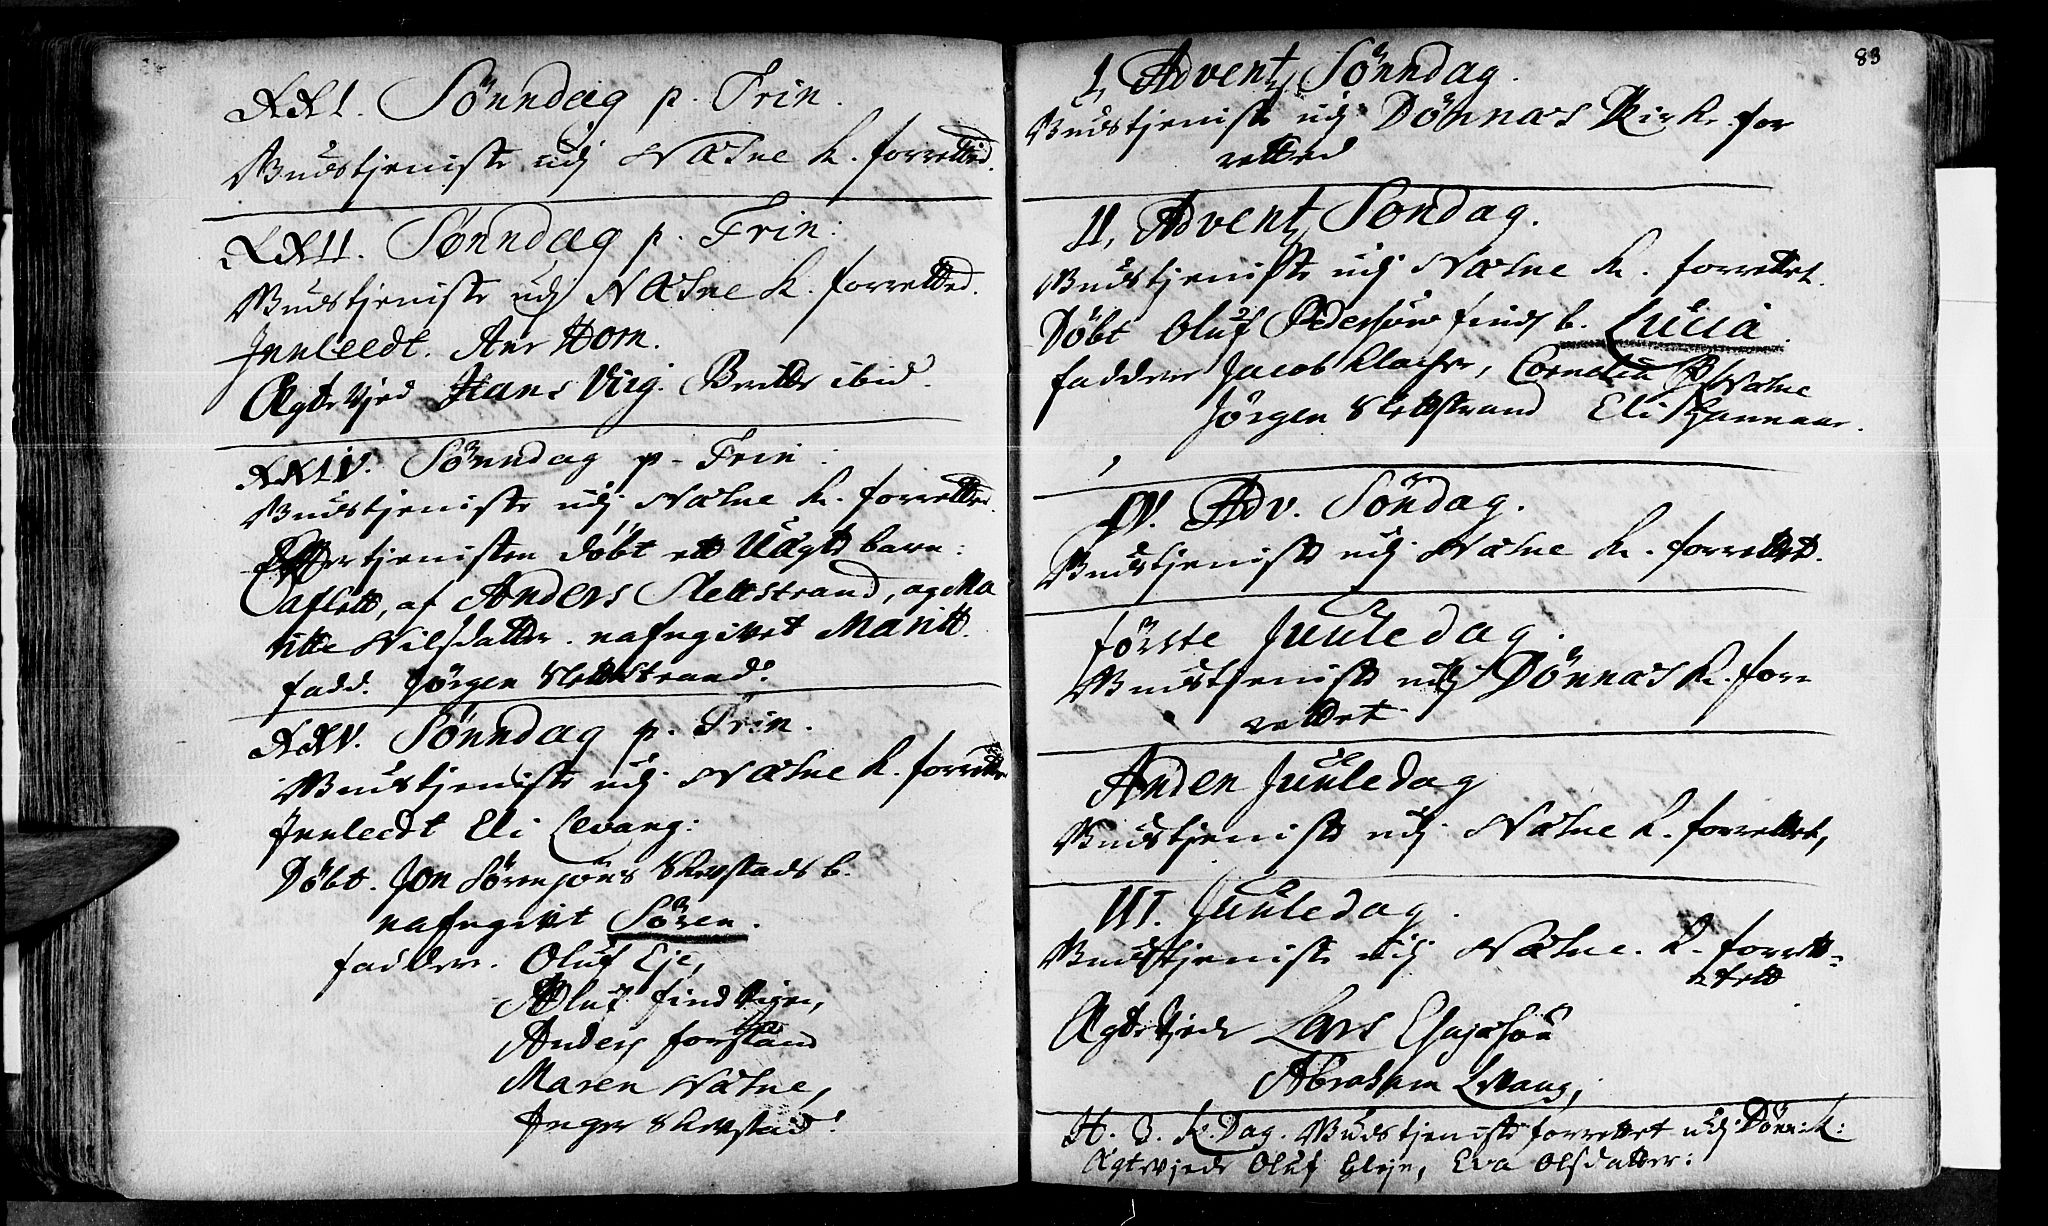 XXI. Sönndag p. Trin.
Gudstjeniste udj Næsne K. forretted.
XXII. Sönndag p. Trin:
Gudstjeniste udj Næsne K. forretted.
Innleedt. Ane Hom.
Ægte Vjed Hans Viig. Beritte ibid.
XXIV. Sönndag p. Trin:
Gudstjeniste udj Næsne K. forretted.
Efter tjenisten döbt ett Uægte barn:
aflett, af Anders Slettstrand, og Ma
ritte Nilsdatter. nafngivet Maritt.
fadd. Jörgen Slettstrand.
XXV. Sönndag p. Trin.
Gudstjeniste udj Næsne K. forrettet
Innleedt Eli Levang:
Döbt. Jon Sörensöns Skevstads b.
nafngivet Sören.
faddere. Oluf Eje,
Oluf find
Anders
Maren Næsne,
Inger Skevstad.
83
I, Advent Sönndag.
Gudstjeniste udj Dönnæs Kirke for
retted
II, Advent Söndag.
Gudstjeniste udj Næsne K. forrettet.
Döbt Oluf Pedersöns finds b. Lucia.
faddere Jacob Clasen, Cornelia Næsne
Jörgen Slettstrand Eli
IV. Adv. Söndag.
Gudstjeniste udj Næsne K. forrettet.
förste Juule dag.
Gudstjeniste udj Dönnæs K. for-
rettet
Anden Juule dag
Gudstjeniste udj Næsne K. forrettet,
III. Juule dag.
Gudstjeniste udj Næsne. K. forrett-
tett
Ægte Vjede Lars Esajasön
Abraham Levang,
H. 3. K. Dag. Gudstjeniste forrettet udj Dönn: K:
Ægtevjede Oluf Glejn, Eva Olsdatter: